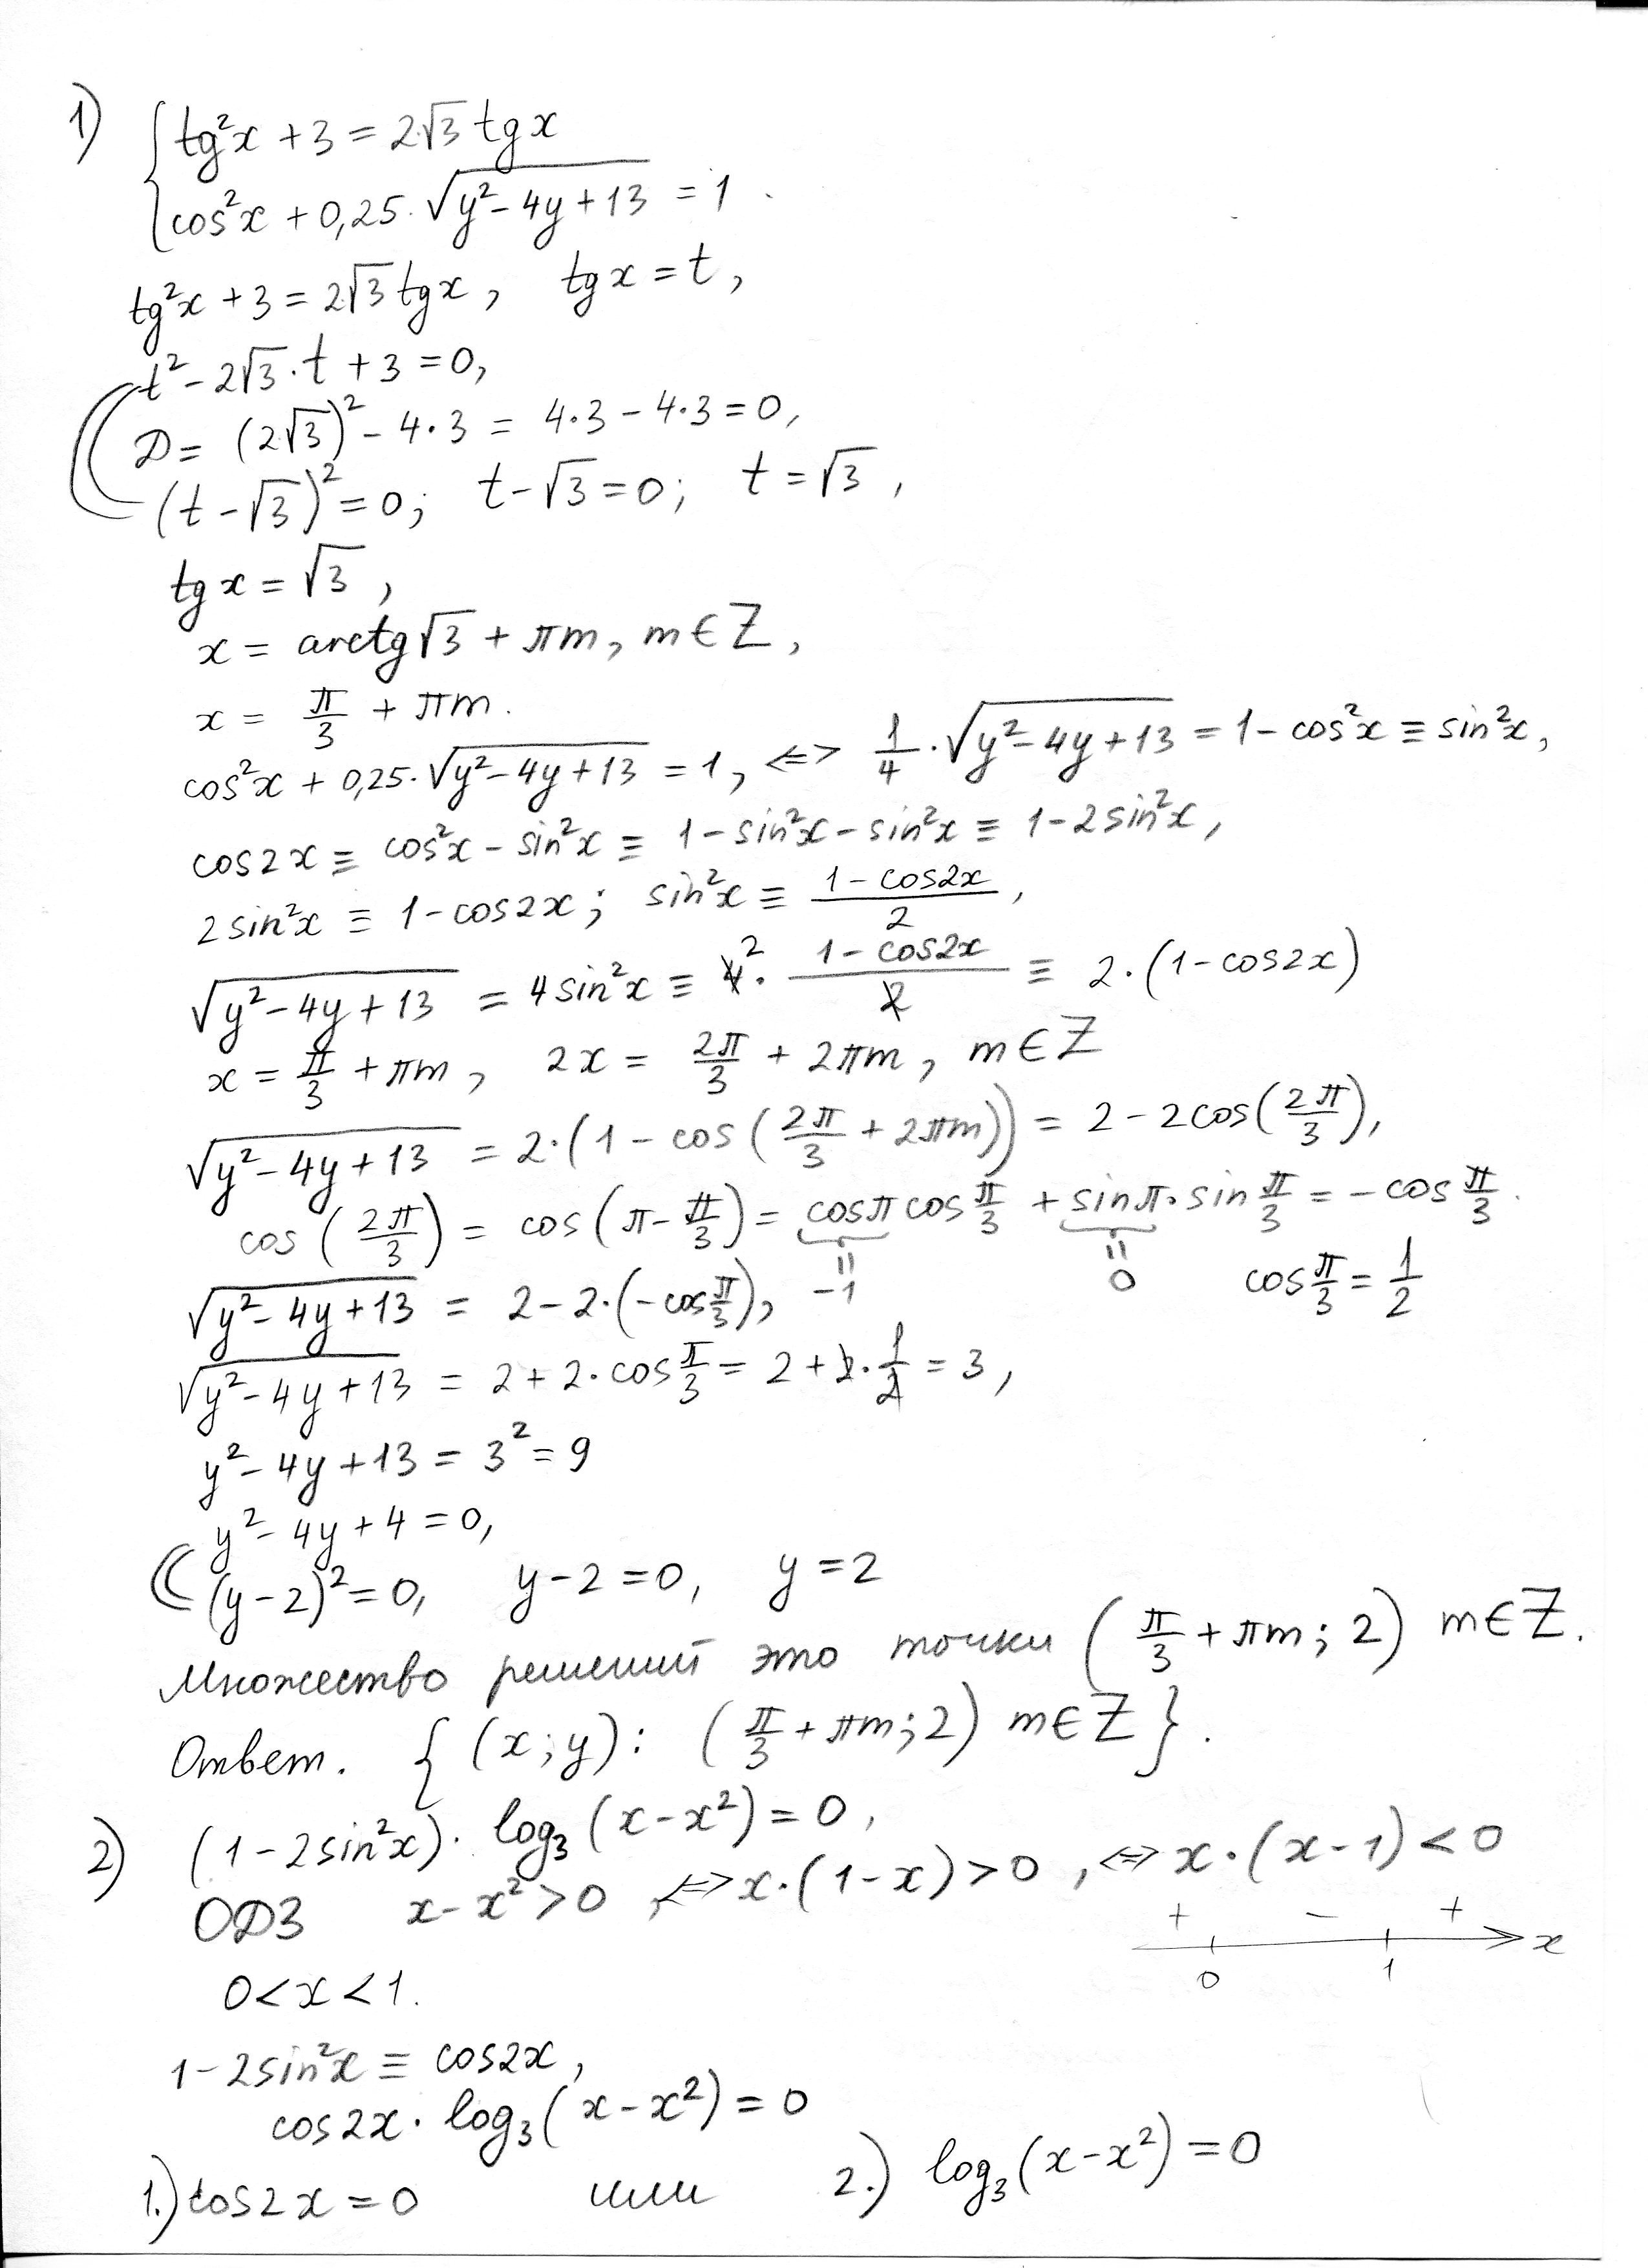 1) { tg²x + 3 = 2√3 tgx
cos²x + 0,25·√(y²-4y+13) = 1.
tg²x + 3 = 2√3 tgx, tgx = t,
t² - 2√3·t + 3 = 0,
D = (2√3)² - 4·3 = 4·3 - 4·3 = 0,
(t-√3)² = 0; t-√3 = 0; t = √3,
tgx = √3,
x = arctg√3 + πm, m∈Z,
x = π/3 + πm.
cos²x + 0,25·√(y²-4y+13) = 1, <=> 1/4·√(y²-4y+13) = 1 - cos²x ≡ sin²x,
cos2x ≡ cos²x - sin²x ≡ 1 - sin²x - sin²x ≡ 1 - 2sin²x,
2sin²x ≡ 1 - cos2x; sin²x ≡ (1 - cos2x)/2,
√(y²-4y+13) = 4sin²x ≡ 4² · (1 - cos2x)/2 ≡ 2·(1-cos2x)
x = π/3 + πm, 2x = 2π/3 + 2πm, m∈Z
√(y²-4y+13) = 2·(1 - cos(2π/3 + 2πm)) = 2 - 2cos(2π/3),
cos(2π/3) = cos(π - π/3) = cosπ cos π/3 + sinπ·sin π/3 = -cos π/3.
= -1 = 0 cos π/3 = 1/2
√(y²-4y+13) = 2 - 2·(-cos π/3),
√(y²-4y+13) = 2 + 2·cos π/3 = 2 + 2·1/2 = 3,
y² - 4y + 13 = 3² = 9
y² - 4y + 4 = 0,
(y-2)² = 0, y-2 = 0, y = 2
Множество решений это точки (π/3 + πm; 2) m∈Z.
Ответ. {(x;y): (π/3 + πm; 2) m∈Z}.
2) (1-2sin²x)·log₃(x-x²) = 0,
ОДЗ x-x² > 0, <=> x·(1-x) > 0, <=> x·(x-1) < 0
+ - +
0 1 x
0 < x < 1.
1-2sin²x ≡ cos2x,
cos2x·log₃(x-x²) = 0
1.) cos2x = 0 или 2.) log₃(x-x²) = 0